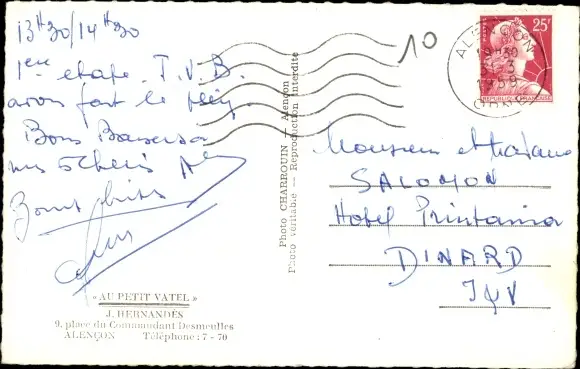 13H30/14H30
1ere etape. T.V.B.
avons fait le plein.
Bons Baisers a
nos chéris
Zous
« AU PETIT VATEL »
J. HERNANDÈS
9, place du Commandant Desmeulles
ALENÇON Téléphone : 7 - 70
Photo CHARROUIN — Alençon
Photo véritable — Reproduction interdite
10
ALENÇON
1959
ORNE
25F
REPUBLIQUE FRANÇAISE
Monsieur et Madame
SALOMON
Hotel Printania
DINARD
I&V